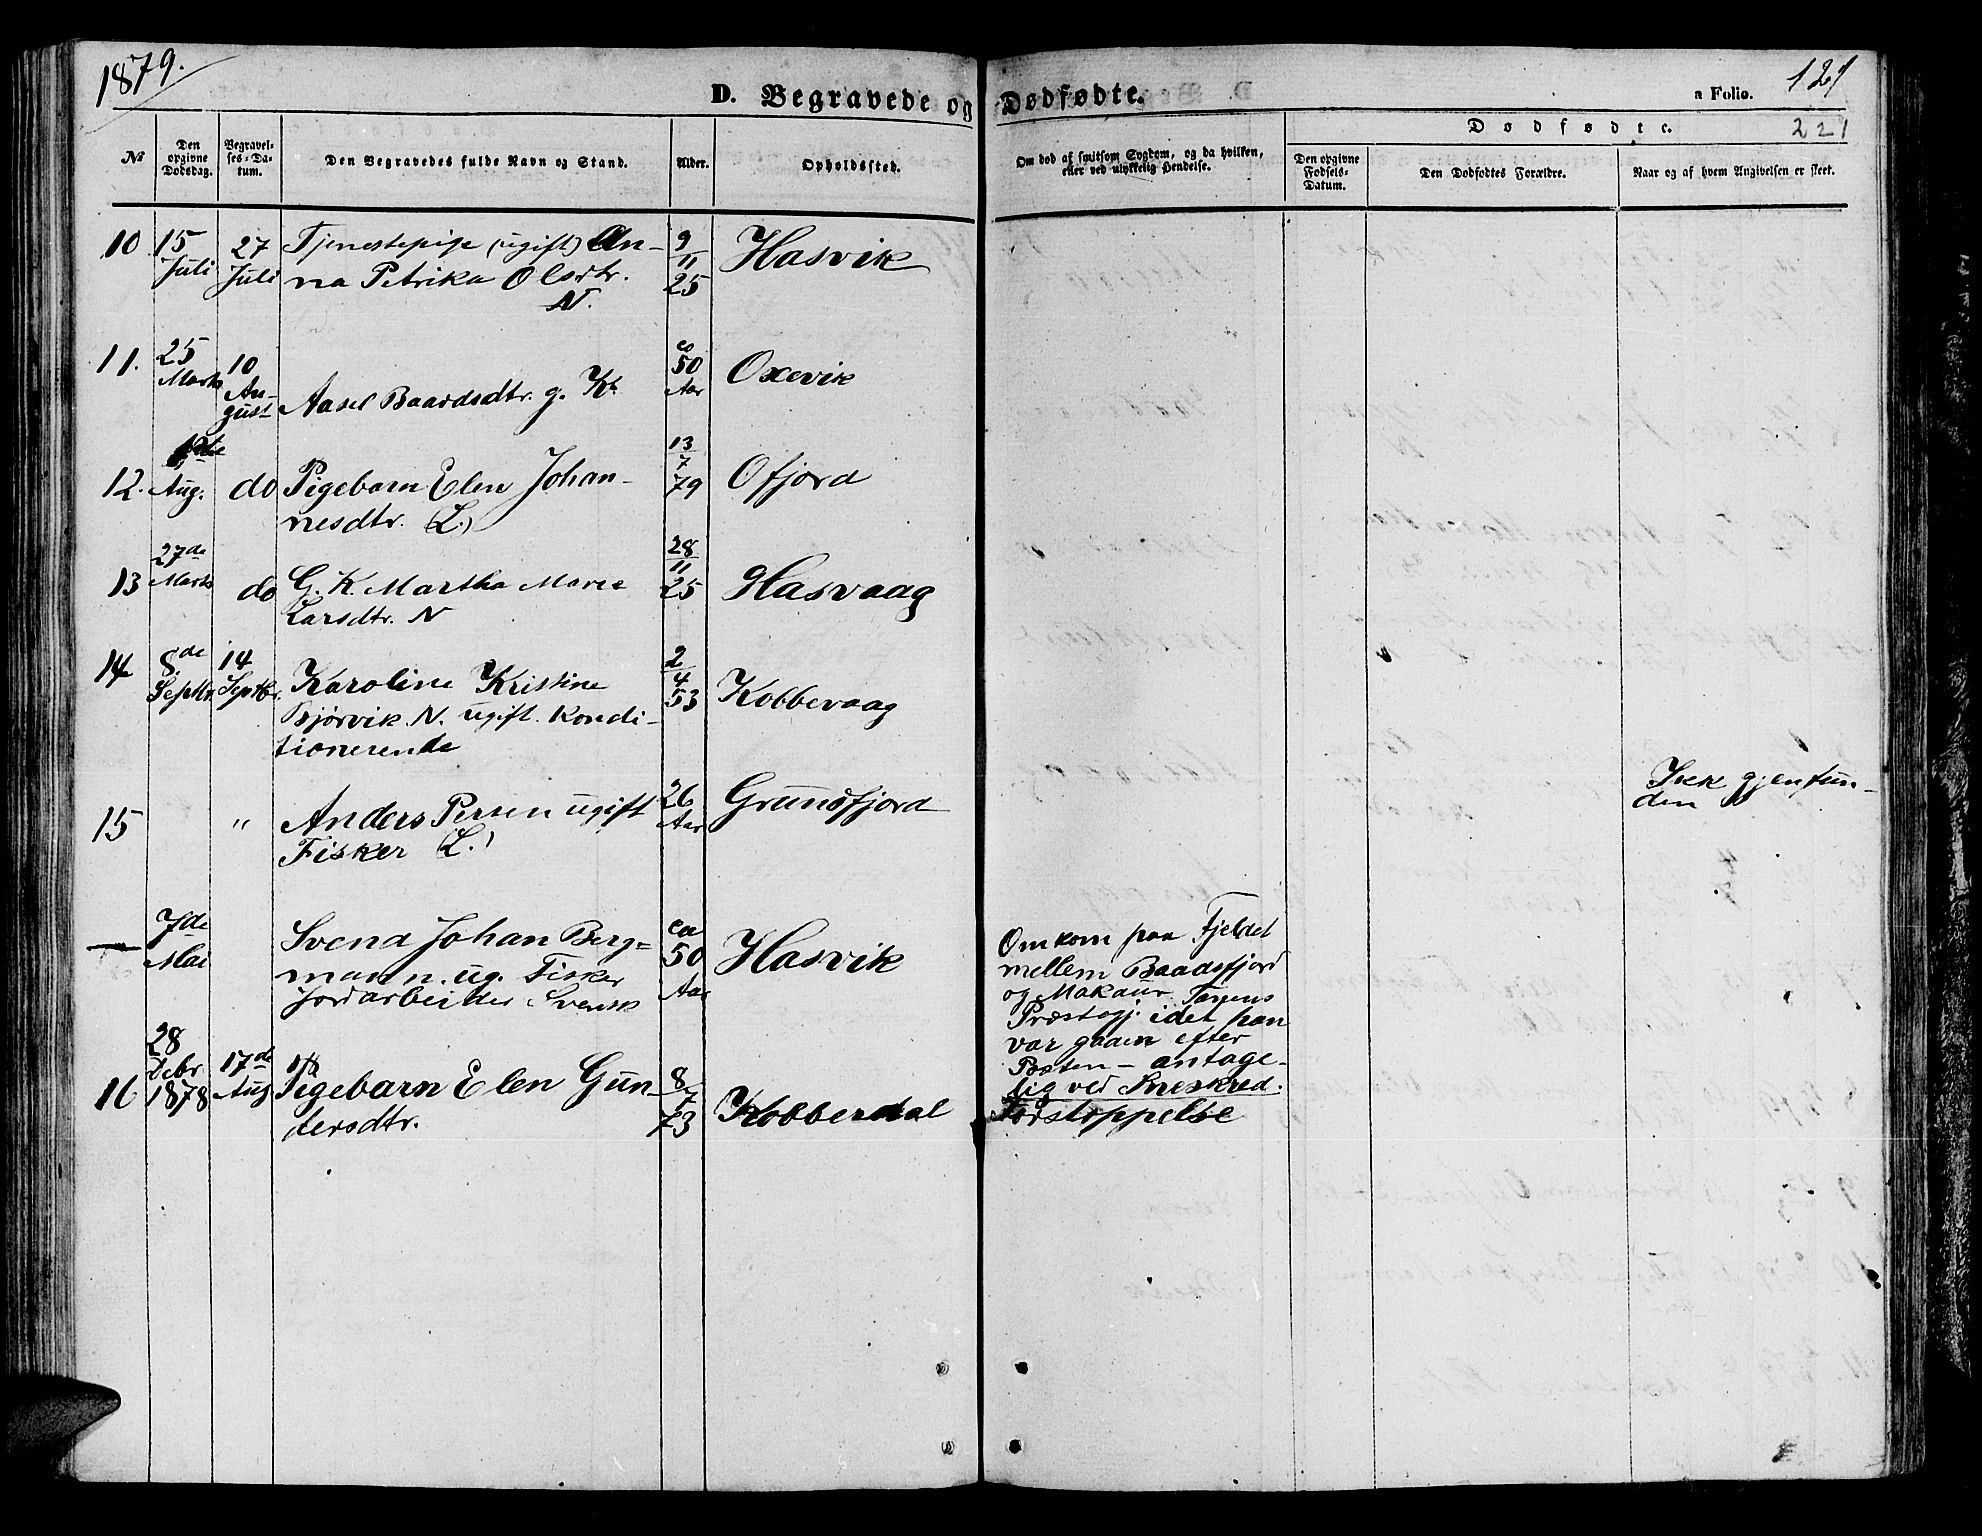 1879.
D. Begravede og Dødfødte.
a Folio. 121
221
No
Den opgivne Dødsdag.
Begravelses-Datum.
Den Begravedes fulde Navn og Stand.
Alder.
Opholdssted.
Om død af smitsom Sygdom, og da hvilken,
eller ved ulykkelig Hendelse.
Dødfødte.
Den opgivne Fødsels-Datum.
Den Dødfødtes Forældre.
Naar og af hvem Angivelsen er skeet.
10 15 Juli 27 Juli Tjenestepige (ugift) An-
na Petrika Olsdtr.
N.
9/11 25 Hasvik
11. 25 Marts 10 Au-
gust Aasel Baardsdtr. g. K.
50 Aar Oxevik
12. Aug. do Pigebarn Elen Johan-
nesdtr. (L.)
13/7 79 Ofjord
13 27de Marts do G. K. Martha Marie
Larsdtr. N
28/11 25 Hasvaag
14 8de Septbr 14 Septbr. Karoline Kristine
Bjørvik. N. ugift. Kondi-
tionerende
2/4 53 Kobbevaag
15 " Anders Persen ugift
Fisker (L.)
26 Aar Grundfjord
Ikk gjenfun-
den
— 7de Mai Svend Johan Berg-
mann. ug. Fisker
Jordarbeider Svensk
ca 50 Aar Hasvik
Omkom paa Fjeldet
mellem Baadsfjord
og Makaur
Præstegj. idet han
var gaaen efter
Posten – antage-
lig ved Sneskred.
16 28 Debr 1878 17de Aug Pigebarn Elen Gun-
dersdtr.
8/7 73 Kobberdal
Forstoppelse